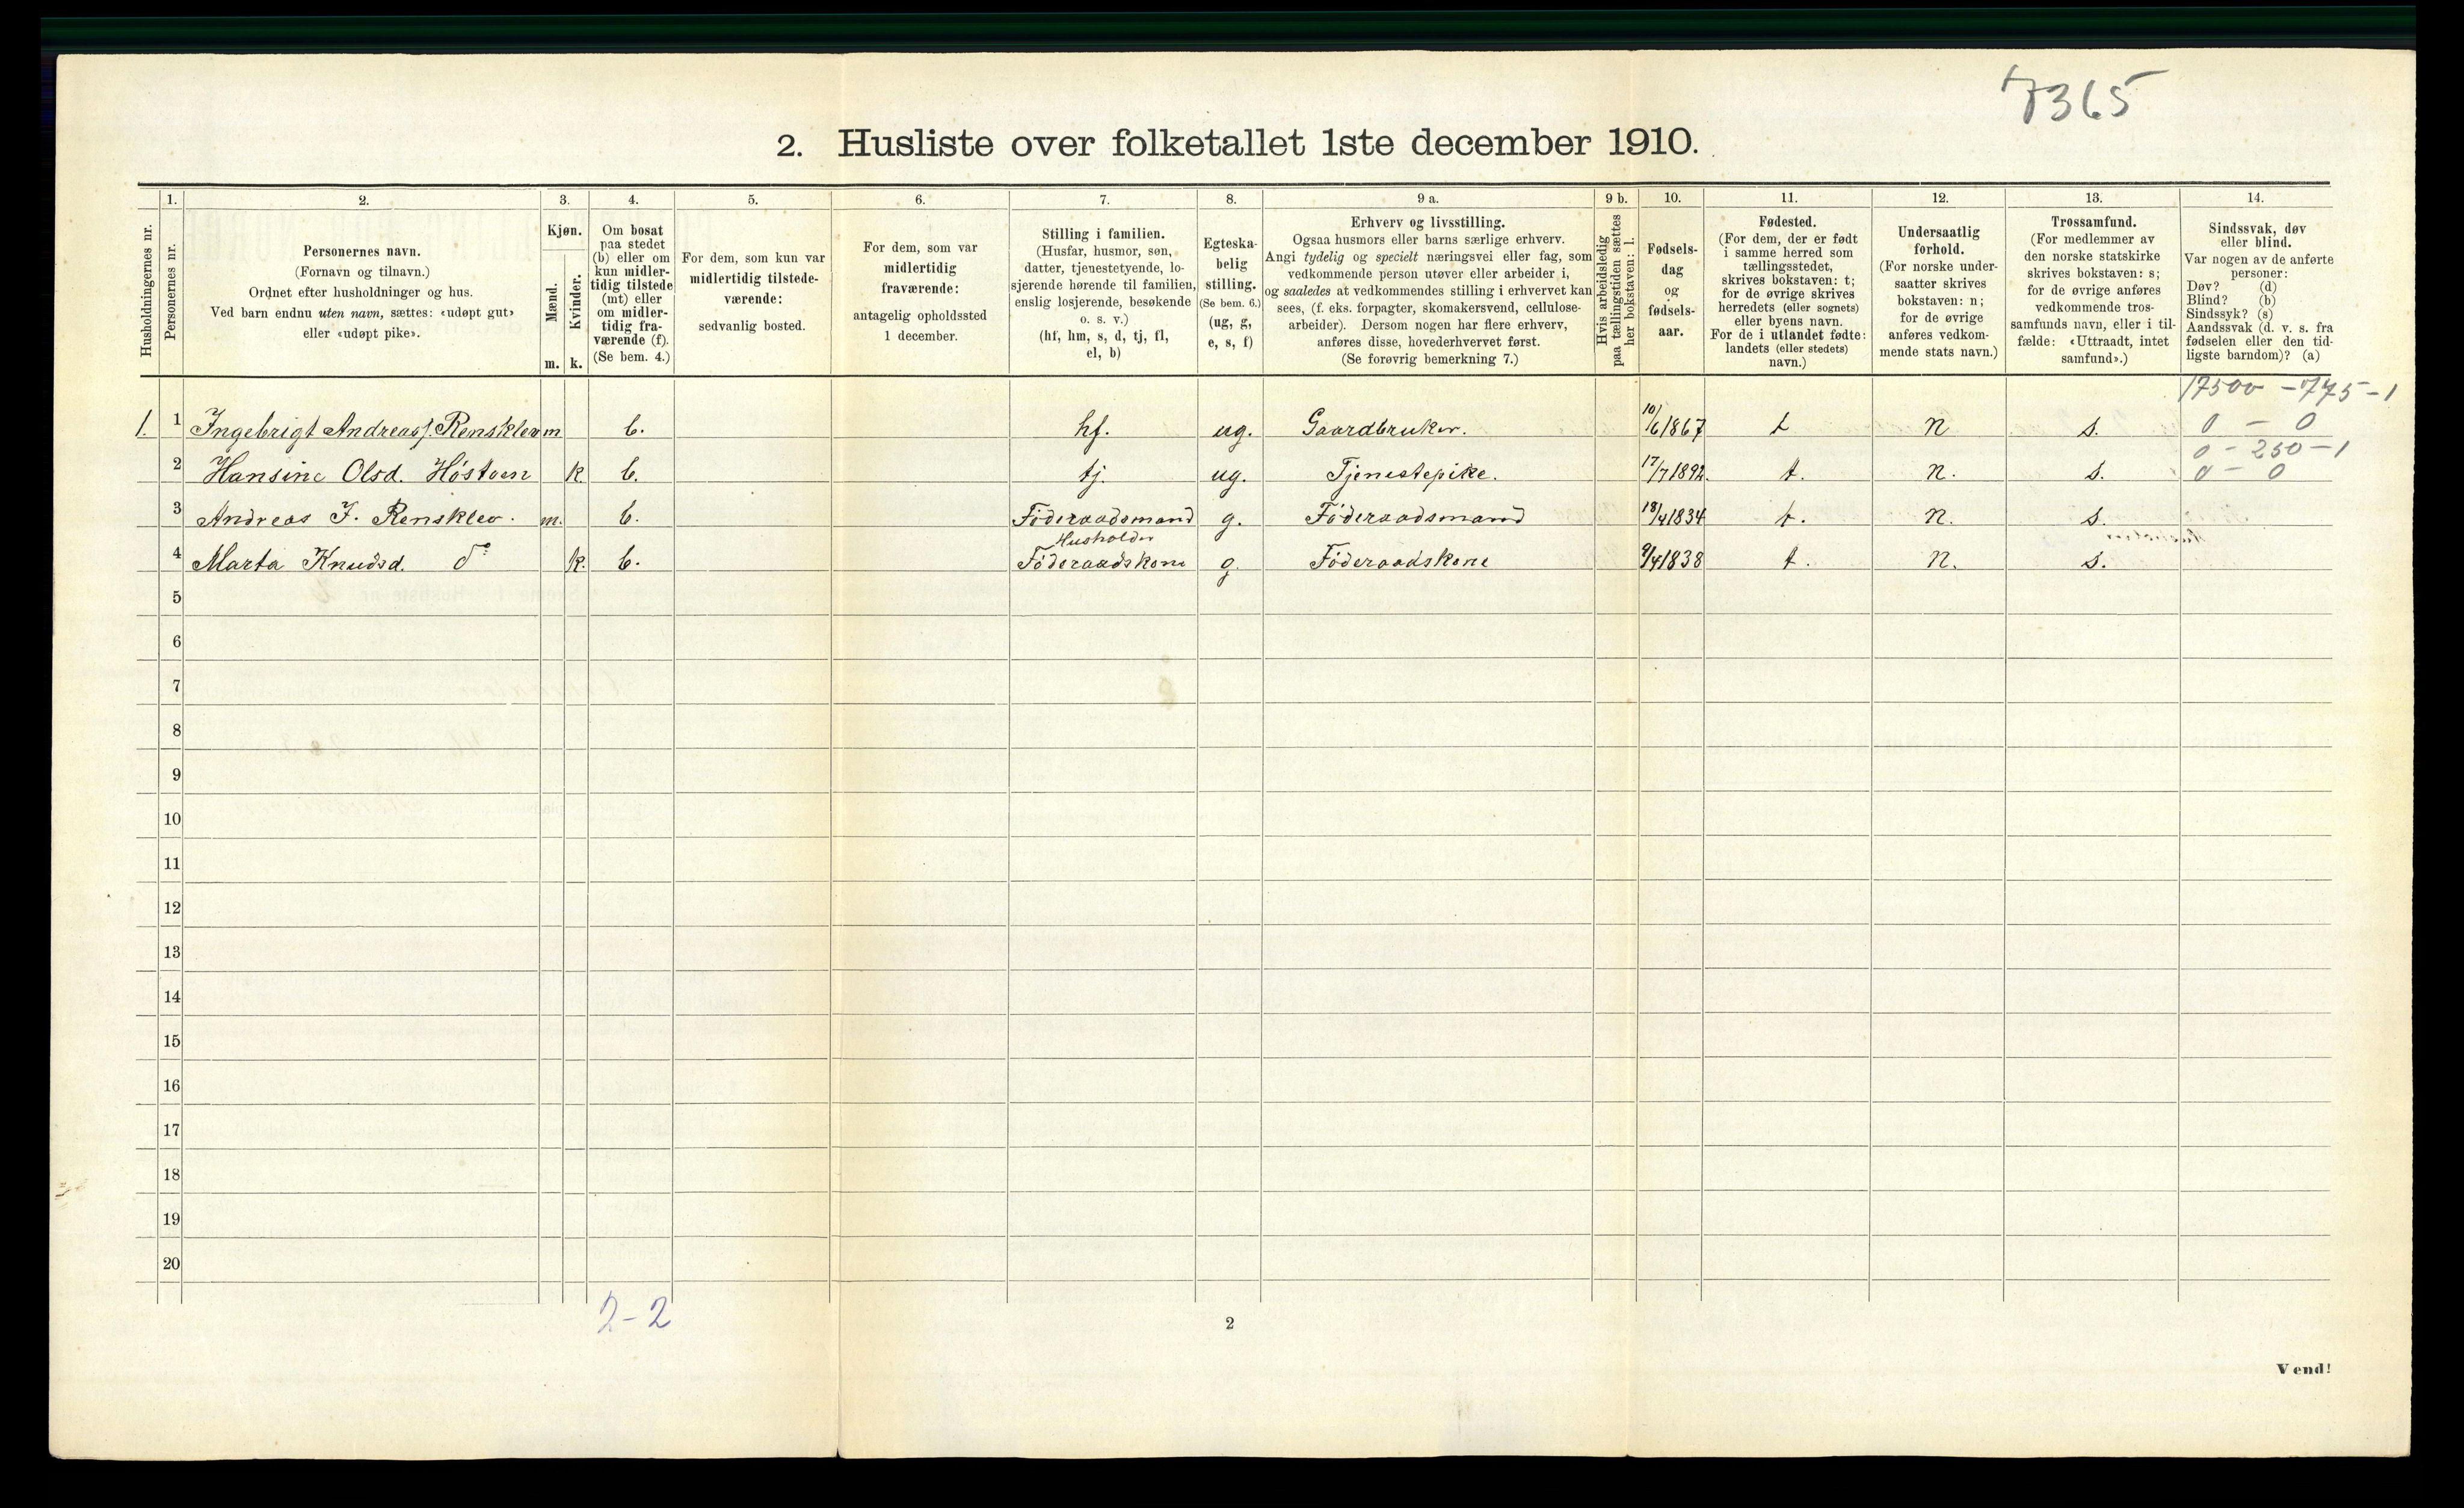 7365
2. Husliste over folketallet 1ste december 1910.
Husholdningernes nr.
1.
Personernes nr.
2.
Personernes navn.
(Fornavn og tilnavn.)
Ordnet efter husholdninger og hus.
Ved barn endnu uten navn, sættes: «udøpt gut»
eller «udøpt pike».
3.
Kjøn.
Mænd.
Kvinder.
m. k.
4.
Om bosat
paa stedet
(b) eller om
kun midler-
tidig tilstede
(mt) eller
om midler-
tidig fra-
værende (f).
(Se bem. 4.)
5.
For dem, som kun var
midlertidig tilstede-
værende:
sedvanlig bosted.
6.
For dem, som var
midlertidig
fraværende:
antagelig opholdssted
1 december.
7.
Stilling i familien.
(Husfar, husmor, søn,
datter, tjenestetyende, lo-
sjerende hørende til familien,
enslig losjerende, besøkende
o. s. v.)
(hf, hm, s, d, tj, fl,
el, b)
8.
Egteska-
belig
stilling.
(Se bem. 6.)
(ug, g,
e, s, f)
9 a.
Erhverv og livsstilling.
Ogsaa husmors eller barns særlige erhverv.
Angi tydelig og specielt næringsvei eller fag, som
vedkommende person utøver eller arbeider i,
og saaledes at vedkommendes stilling i erhvervet kan
sees, (f. eks. forpagter, skomakersvend, cellulose-
arbeider). Dersom nogen har flere erhverv,
anføres disse, hovederhvervet først.
(Se forøvrig bemerkning 7.)
9 b.
Hvis arbeidsledig
paa tællingstiden sættes
her bokstaven: l.
10.
Fødsels-
dag
og
fødsels-
aar.
11.
Fødested.
(For dem, der er født
i samme herred som
tællingsstedet,
skrives bokstaven: t;
for de øvrige skrives
herredets (eller sognets)
eller byens navn.
For de i utlandet fødte:
landets (eller stedets)
navn.)
12.
Undersaatlig
forhold.
(For norske under-
saatter skrives
bokstaven: n;
for de øvrige
anføres vedkom-
mende stats navn.)
13.
Trossamfund.
(For medlemmer av
den norske statskirke
skrives bokstaven: s;
for de øvrige anføres
vedkommende tros-
samfunds navn, eller i til-
fælde: «Uttraadt, intet
samfund».)
14.
Sindssvak, døv
eller blind.
Var nogen av de anførte
personer:
Døv? (d)
Blind? (b)
Sindssyk? (s)
Aandssvak (d. v. s. fra
fødselen eller den tid-
ligste barndom)? (a)
17500 - 775 - 1
1. 1 Ingebrigt Andreass. Rensklev m b. hf. ug. Gaardbruker. 10/6 1867 t n s. 0 - 0
0 - 250 - 1
2 Hansine Olsd. Høstoen k. b. tj. ug. Tjenestepike. 17/7 1892. t. n. s. 0 - 0
3 Andreas I. Rensklev. m. b. Föderaadsmand g. Föderaadsmand 18/4 1834 t. n. s.
Husholder
4 Marta Knudsd. do k. b. Föderaadskone g. Föderaadskone 9/4 1838 t. n. s.
5
6
7
8
9
10
11
12
13
14
15
16
17
18
19
20
2-2
2
Vend!